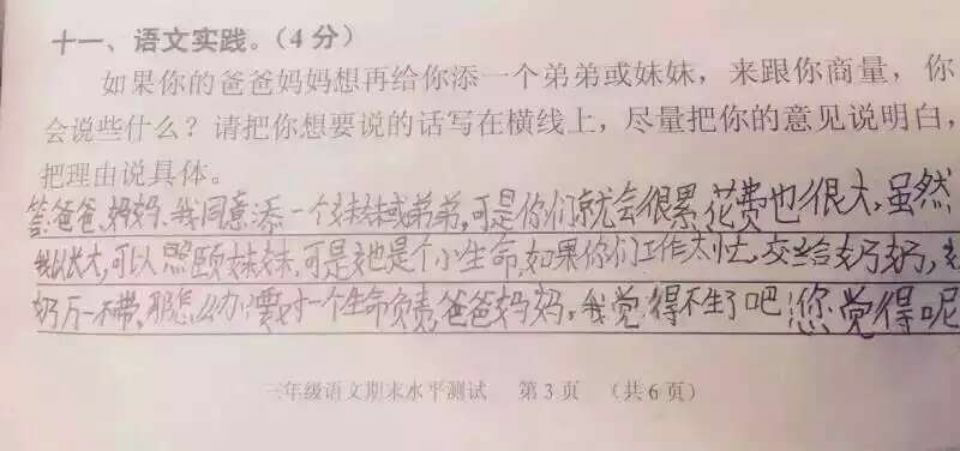 十一、语文实践。（4分）
如果你的爸爸妈妈想再给你添一个弟弟或妹妹，来跟你商量，你
会说些什么？请把你想要说的话写在横线上，尽量把你的意见说明白，
把理由说具体。
答：爸爸、妈妈、我同意添一个妹妹或弟弟，可是你们就会很累，花费也很大，虽然
我以长大，可以照顾妹妹，可是她是个小生命，如果你们工作太忙，交给奶奶，
奶万一不带，那怎么办，要对一个生命负责，爸爸妈妈，我觉得不生了吧！您觉得呢
三年级语文期末水平测试 第3页 （共6页）